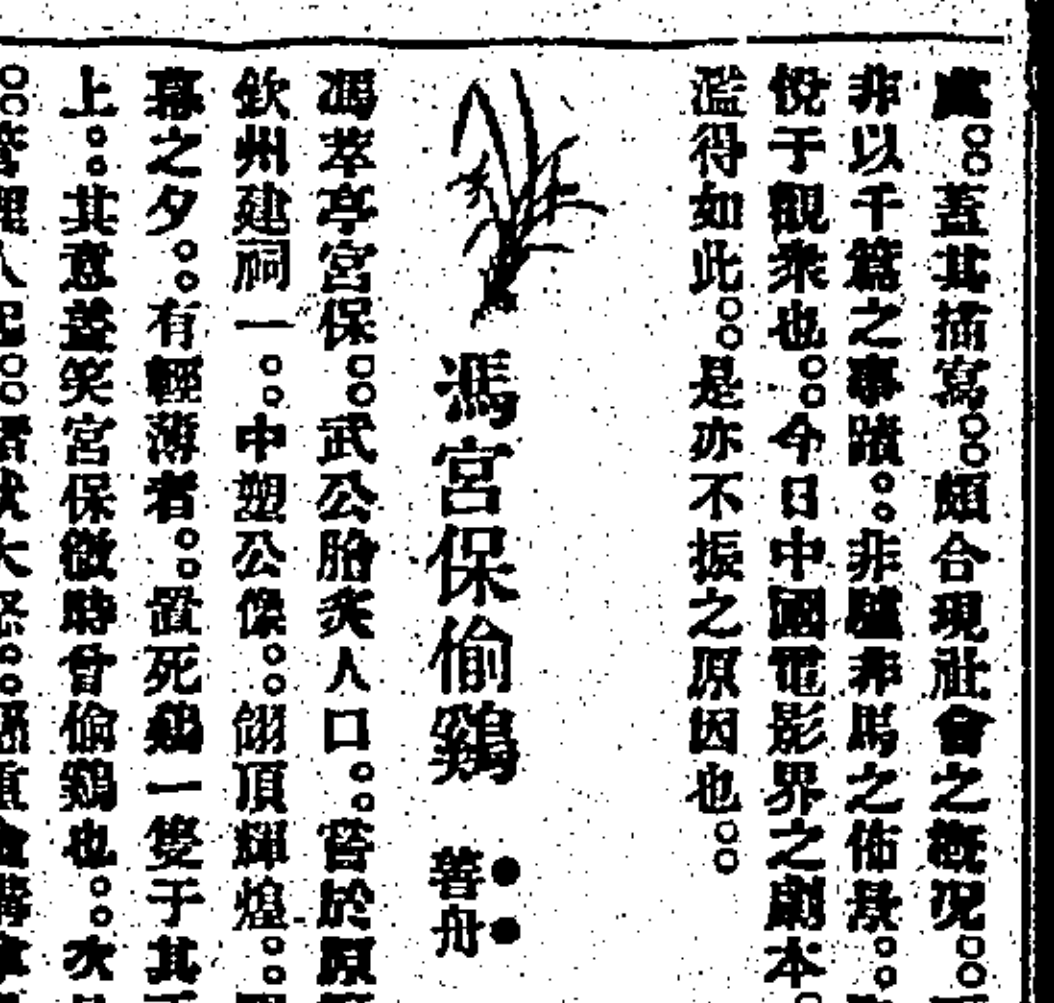 蓋其描寫。頗合現社會之概况。
非以千篇之事蹟。非驢非馬之佈景。
悅于觀衆也。今日中國電影界之劇本
濫得如此。是亦不振之原因也。
馮宮保偷鷄
善舟
馮萃亭宮保。武公膾炙人口。嘗於原
欽州建祠一。中塑公像。翎頂輝煌。
幕之夕。有輕薄者。置死鷄一隻于其
上。其意蓋笑宮保微時曾偷鷄也。次